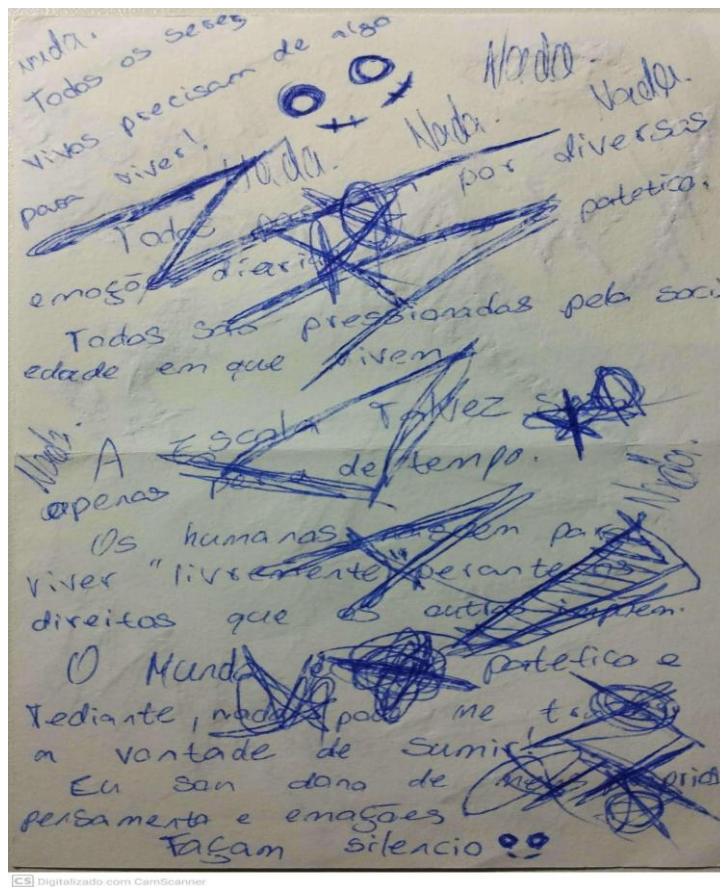 nada.
Todos os seres
vivos precisam de algo
para viver!
Nada. Nada. Nada. Nada.
Todos por diversas
emoçõ diari patetico.
Todos são pressionadas pela soci
edade em que vivem
Nada.
A Escola Talvez
apenas perca de tempo.
Nada.
Os humanos nascem para
viver "livremente" perante os
direitos que os outros impoem.
O Mundo é patetico e
Tediante, nada pode me
a vontade de sumir!
Eu sou dono de
pensamento e emoções
Façam silencio
CS Digitalizado com CamScanner